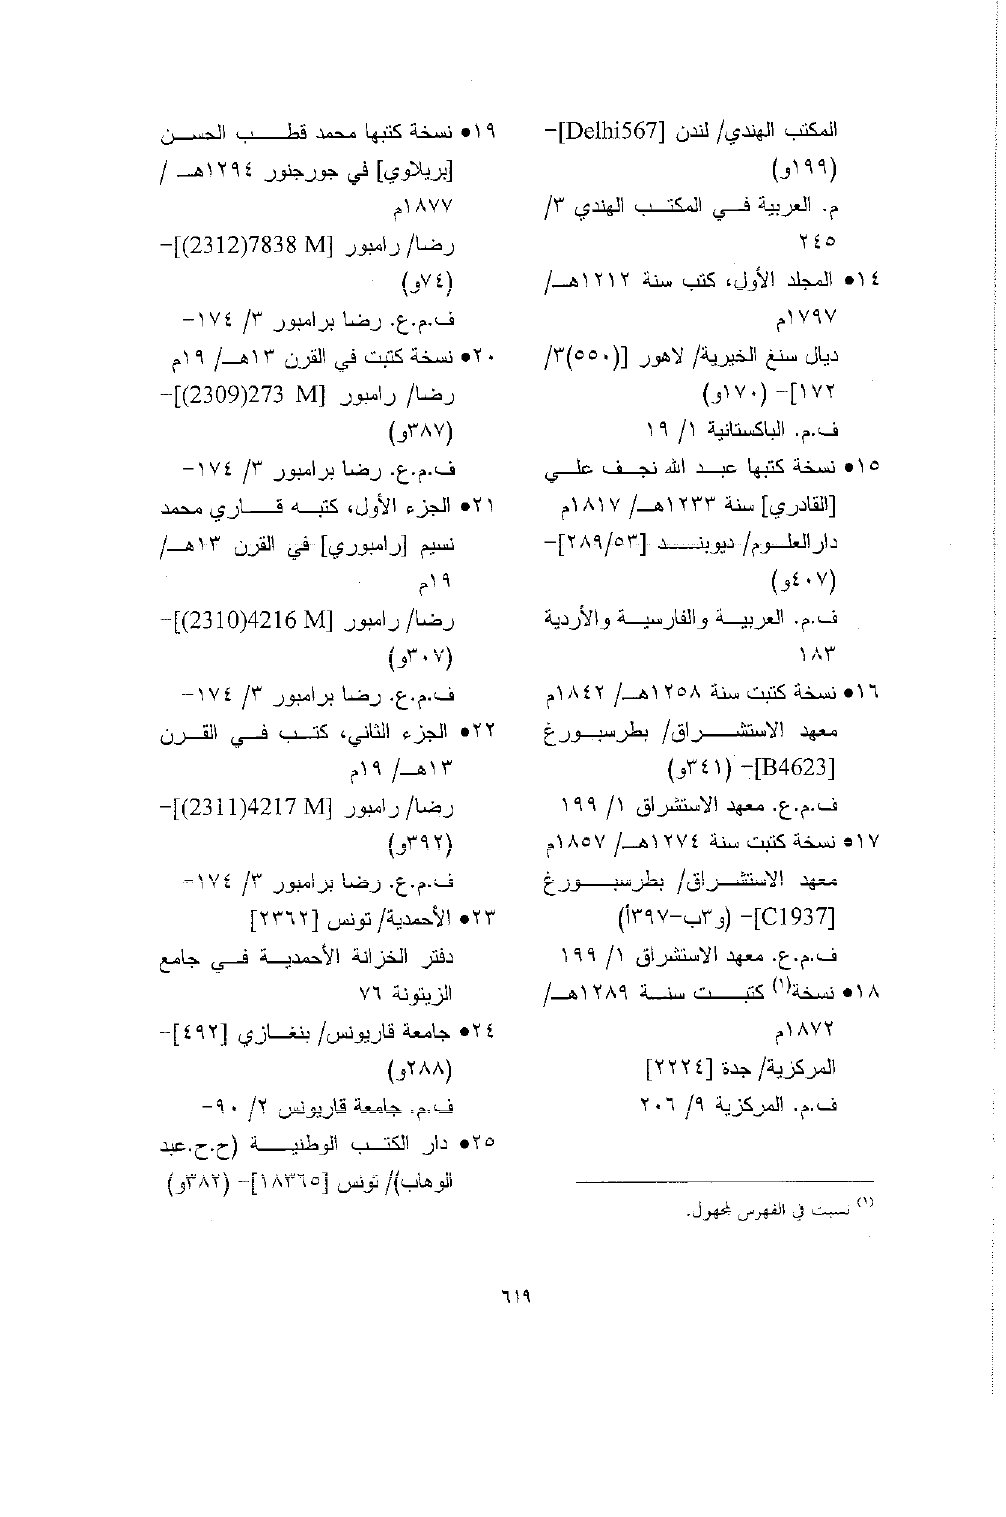 المكتب الهندي/ لندن [Delhi567]-
(١٩٩و)
م. العربية في المكتب الهندي ٣/
٢٤٥
١٤• المجلد الأول، كتب سنة ١٢١٢هـ/
١٧٩٧م
ديال سنغ الخيرية/ لاهور [(٥٥٠)٣/
١٧٢]- (١٧٠و)
ف.م. الباكستانية ١/ ١٩
١٥• نسخة كتبها عبد الله نجف علي
[القادري] سنة ١٢٣٣هـ/ ١٨١٧م
دارالعلوم/ ديوبند [٢٨٩/٥٣]-
(٤٠٧و)
ف.م. العربية والفارسية والأردية
١٨٣
١٦• نسخة كتبت سنة ١٢٥٨هـ/ ١٨٤٢م
معهد الاستشراق/ بطرسبورغ
[B4623]- (٣٤١و)
ف.م.ع. معهد الاستشراق ١/ ١٩٩
١٧• نسخة كتبت سنة ١٢٧٤هـ/ ١٨٥٧م
معهد الاستشراق/ بطرسبورغ
[C1937]- (و٣ب-٣٩٧أ)
ف.م.ع. معهد الاستشراق ١/ ١٩٩
١٨• نسخة(١) كتبت سنة ١٢٨٩هـ/
١٨٧٢م
المركزية/ جدة [٢٢٢٤]
ف.م. المركزية ٩/ ٢٠٦
(١) نسبت في الفهرس لمجهول.
١٩• نسخة كتبها محمد قطب الحسن
[بريلاوي] في جورجنور ١٢٩٤هـ/
١٨٧٧م
رضا/ رامبور [M 7838(2312)]-
(٧٤و)
ف.م.ع. رضا برامبور ٣/ ١٧٤-
٢٠• نسخة كتبت في القرن ١٣هـ/ ١٩م
رضا/ رامبور [M 273(2309)]-
(٣٨٧و)
ف.م.ع. رضا برامبور ٣/ ١٧٤-
٢١• الجزء الأول، كتبه قاري محمد
نسيم [رامبوري] في القرن ١٣هـ/
١٩م
رضا/ رامبور [M 4216(2310)]-
(٣٠٧و)
ف.م.ع. رضا برامبور ٣/ ١٧٤-
٢٢• الجزء الثاني، كتب في القرن
١٣هـ/ ١٩م
رضا/ رامبور [M 4217(2311)]-
(٣٩٢و)
ف.م.ع. رضا برامبور ٣/ ١٧٤-
٢٣• الأحمدية/ تونس [٢٣٦٢]
دفتر الخزانة الأحمدية في جامع
الزيتونة ٧٦
٢٤• جامعة قاريونس/ بنغازي [٤٩٢]-
(٢٨٨و)
ف.م. جامعة قاريونس ٢/ ٩٠-
٢٥• دار الكتب الوطنية (ح.ح.عبد
الوهاب)/ تونس [١٨٣٦٥]- (٣٨٢و)
٦١٩